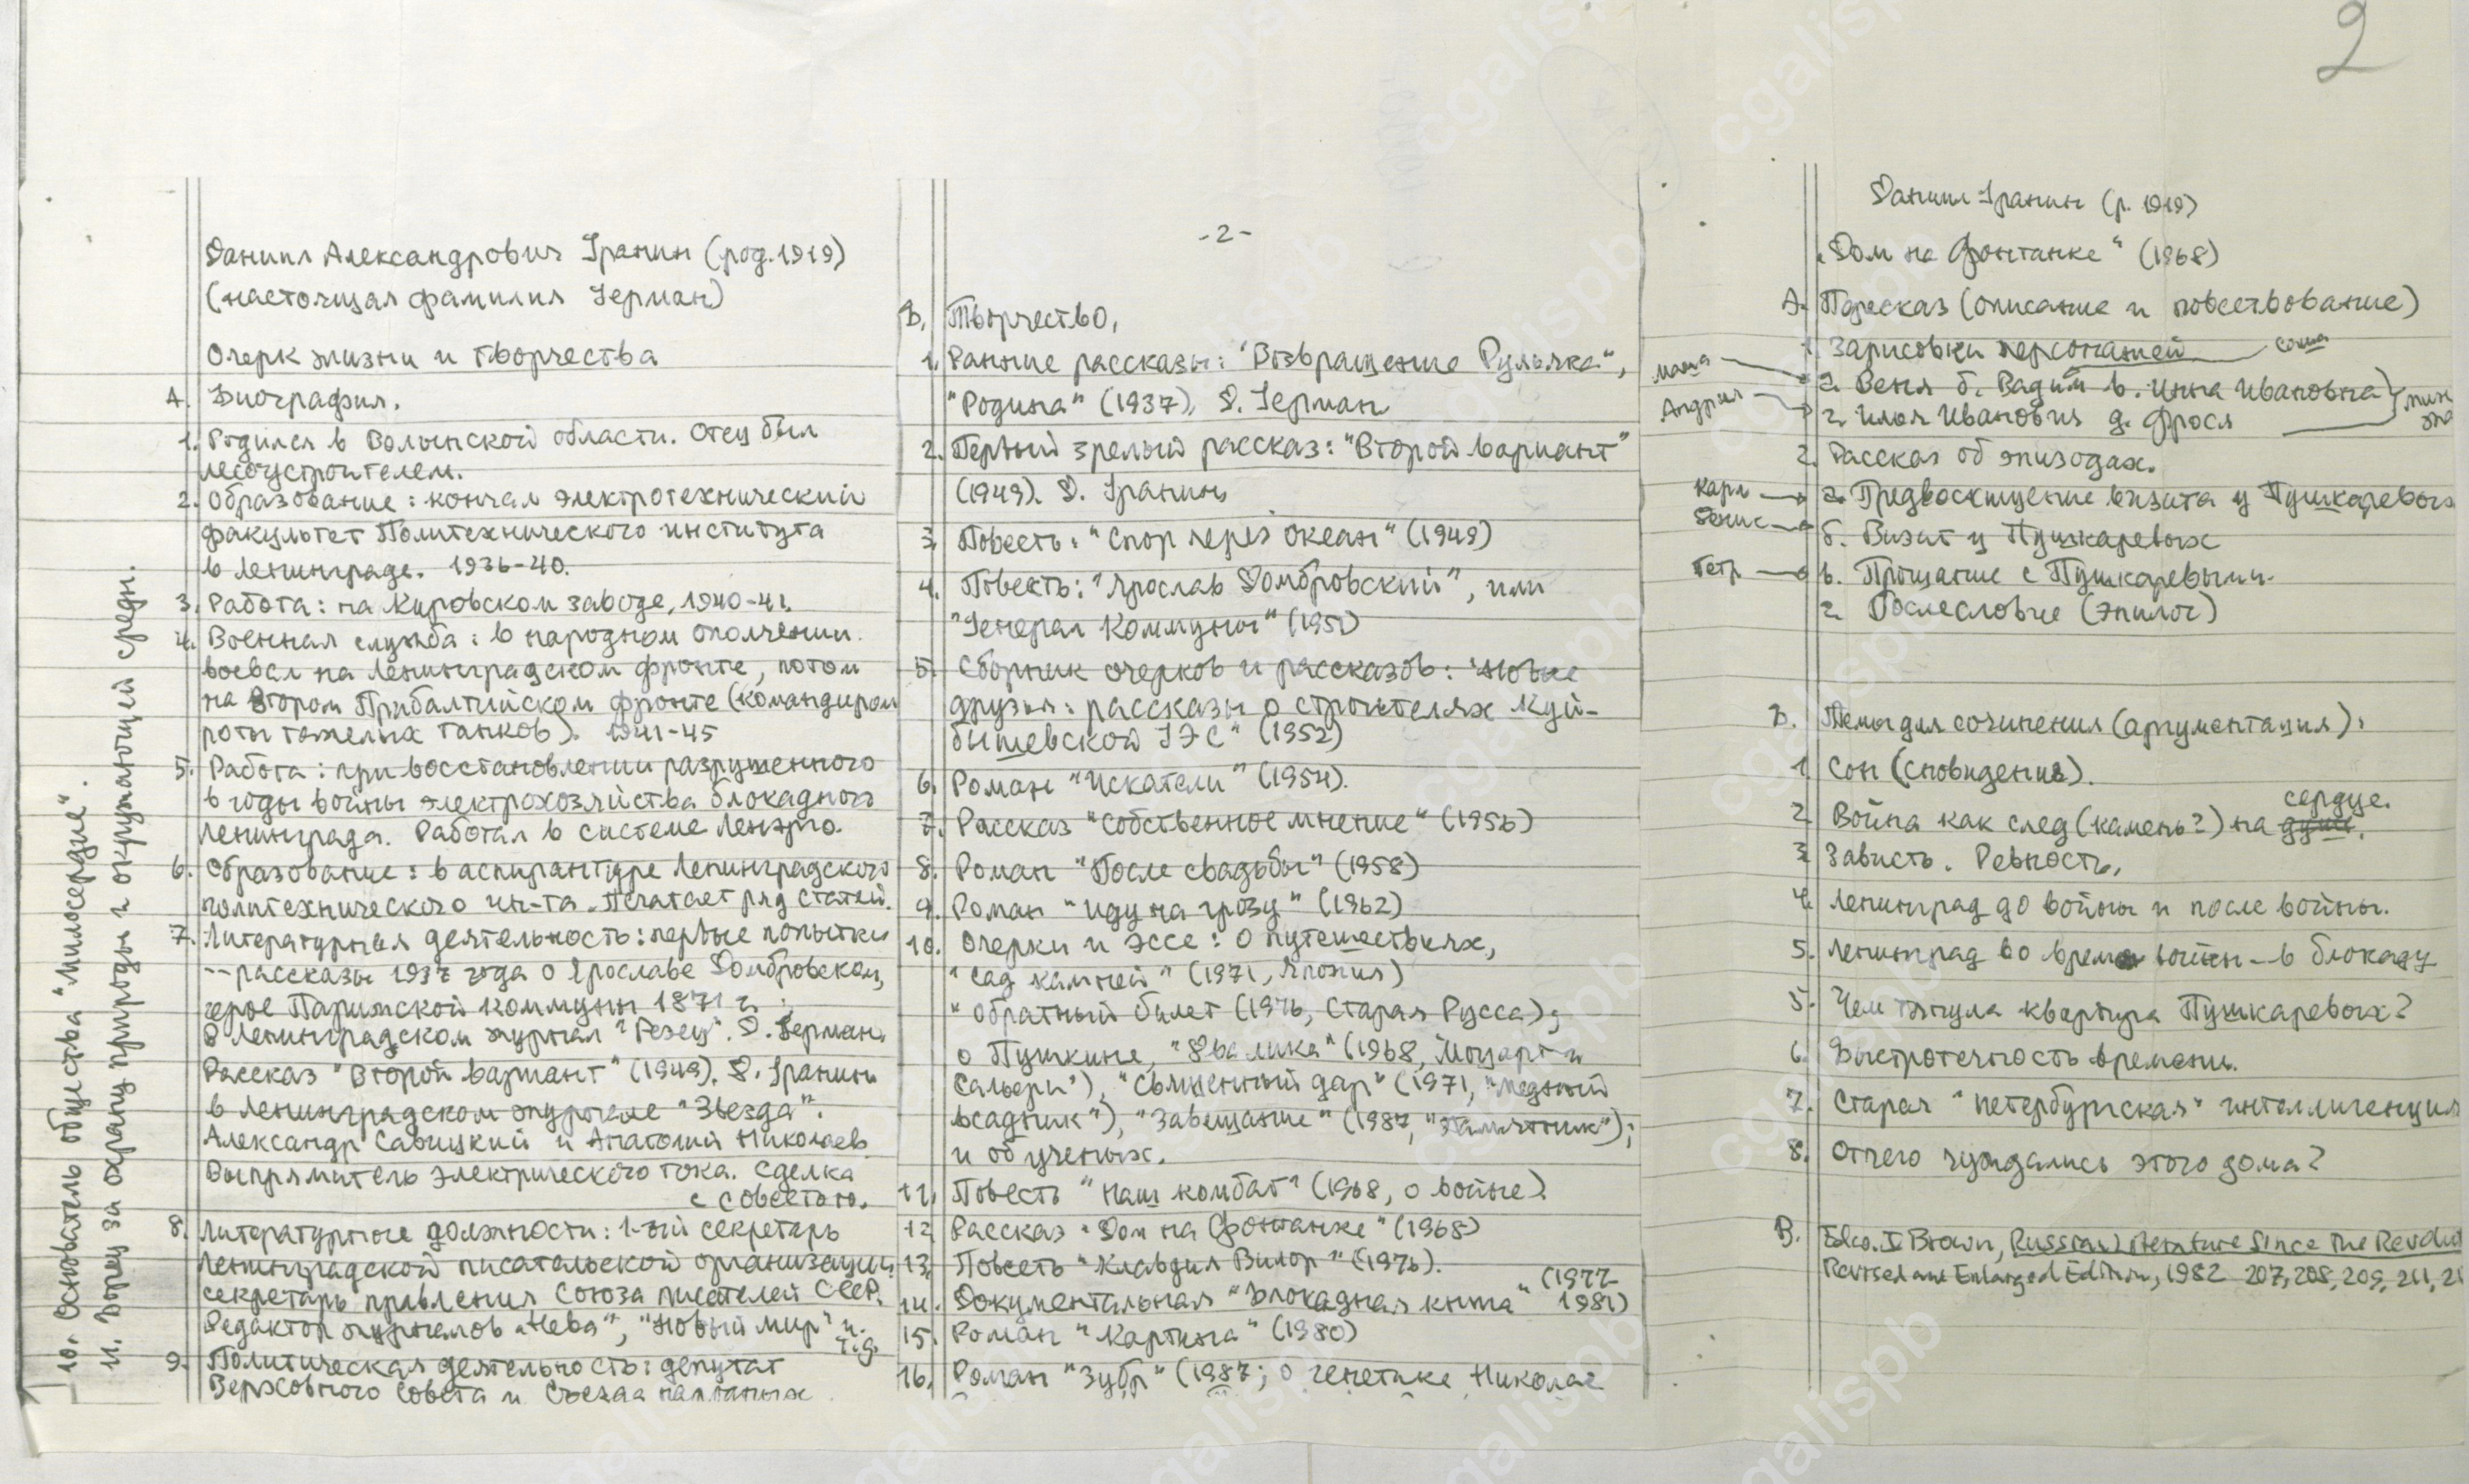 2
Даниил Александрович Гранин (род. 1919)
(настоящая фамилия Герман)
Очерк жизни и творчества
А. Биография.
1. Родился в Волынской области. Отец был
лесоустроителем.
2. Образование: кончал электротехнический
факультет Политехнического института
в Ленинграде. 1936-40.
3. Работа: на Кировском заводе, 1940-41.
4. Военная служба: в народном ополчении.
воевал на Ленинградском фронте, потом
на Втором Прибалтийском фронте (командиром
роты тяжелых танков). 1941-45
5. Работа: при восстановлении разрушенного
в годы войны электрохозяйства блокадного
Ленинграда. Работал в системе Ленэрго.
6. Образование: в аспирантуре Ленинградского
политехнического ин-та. Печатает ряд статей.
7. Литературная деятельность: первые попытки
--рассказы 1937 года о Ярославе Домбровском,
герое Парижской коммуны 1871 г.;
в Ленинградском журнал "Резец". Д. Герман.
Рассказ "Второй вариант" (1949). Д. Гранин
в ленинградском журнале "Звезда".
Александр Савицкий и Анатолий Николаев
Выпрямитель электрического тока. Сделка
с совестью.
8. Литературные должности: 1-ый секретарь
Ленинградской писательской организации,
секретарь правления Союза писателей СССР.
Редактор журналов "Нева", "Новый мир" и
т.д.
9. Политическая деятельность: депутат
Верховного Совета и Съезда народных
10. Основатель общества "Милосердие".
11. Борец за охрану природы и окружающей среды.
-2-
Б. Творчество.
1. Ранние рассказы: "Возвращение Рульяка",
"Родина" (1937), Д. Герман
2. Первый зрелый рассказ: "Второй вариант"
(1949). Д. Гранин
3. Повесть: "Спор через океан" (1949)
4. Повесть: "Ярослав Домбровский", или
"Генерал Коммуны" (1951)
5. Сборник очерков и рассказов: "Новые
друзья: рассказы о строителях Куй-
бышевской ГЭС" (1952)
6. Роман "Искатели" (1954).
7. Рассказ "Собственное мнение" (1956)
8. Роман "После свадьбы" (1958)
9. Роман "Иду на грозу" (1962)
10. Очерки и эссе: о путешествиях,
"Сад камней" (1971, Япония)
"Обратный билет (1976, Старая Русса);
о Пушкине, "Два лика" (1968, "Моцарт и
Сальери"), "Священный дар" (1971, "Медный
всадник"), "Завещание" (1987, "Памятник");
и об ученых.
11. Повесть "Наш комбат" (1968, о войне).
12. Рассказ "Дом на Фонтанке" (1968)
13. Повесть "Клавдия Вилор" (1976).
14. Документальная "Блокадная книга" (1977
1981)
15. Роман "Картина" (1980)
16. Роман "Зубр" (1987; о генетике Николае
Даниил Гранин (р. 1919)
"Дом на Фонтанке" (1968)
А. Пересказ (описание и повествование)
1. Зарисовки персонажей саша
маша а. Веня б. Вадим в. Инна Ивановна
Андрия г. Илья Иванович д. Фрося
2. Рассказ об эпизодах.
Карл а. Предвосхищение визита у Пушкаревых
Денис б. Визит у Пушкаревых
Петр в. Прощание с Пушкаревыми.
г. Послесловие (эпилог)
Б. Темы для сочинения (аргументация):
1. Сон (сновидения).
сердце.
2. Война как след (камень?) на душе.
3. Зависть. Ревность.
4. Ленинград до войны и после войны.
5. Ленинград во время войны - в блокаду
5. Чем тянула квартира Пушкаревых?
6. Быстротечность времени.
7. Старая "петербургская" интеллигенция
8. Отчего чуждались этого дома?
В. Edw. J Brown, Russian Literature Since the Revolu
Revised and Enlarged Edition, 1982 207, 208, 209, 211, 21